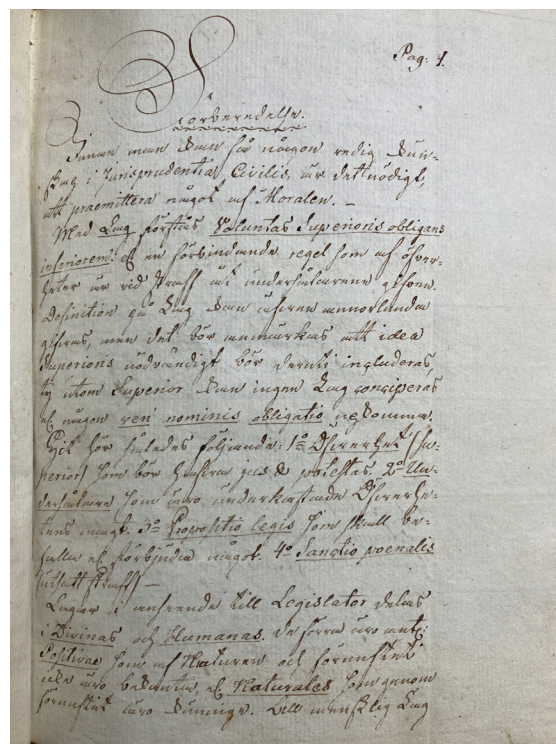 Pag: 1.
Förberedelse.
Innan man kan få någon redig kun-
skap i Jurisprudentia Civilis, är det nödigt,
att praemittera något af Moralen. –
Med Lag förstås Voluntas Superioris obligans
inferiorem: el en förbindande regel som af öfver-
heten är vid straff åt undersåtarene gifven.
Definition på Lag kan äfven annorlunda
gifvas, men det bör anmärkas att idea
Superioris nödvändigt bör deruti includeras,
ty utom Superior kan ingen Lag conciperas
el någon veri nominis obligatio
Hit hör således följande: 1o Öfverhet (Su-
perior) som bör hafva jus & potestas. 2o Un-
dersåtare som äro underkastade Öfverhe-
tens magt. 3o Propositio legis som skall be-
falla el förbjuda något. 4o Sanctio poenalis
(utsatt straff) –
Lagar i anseende till Legislator delas
i Divinas och Humanas. De förra äro antingen
Positivae som af Naturen och förnuftet
icke äro bekanta, el Naturales som genom
förnuftet äro kunnige. Till mensklig Lag